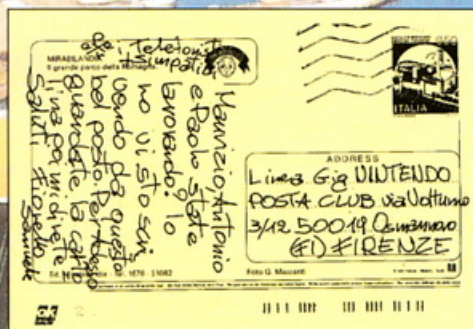 MIRABILANDIA
Il grande parco della Romagna
Telefonisti
Simpatici
Maurizio, Antonio
e Paolo state
lavorando? Io
no vi sto scri
vendo da questo
bel posto. Per Adesso
guardate la carto
lina poi mi direte
Saluti Fiorello
Samuele
ITALIA
ADDRESS
Linea Gig NINTENDO
POSTA CLUB via Volturno
3/12 50019 Osmannoro
(FI) FIRENZE
Foto G. Mazzanti
ok